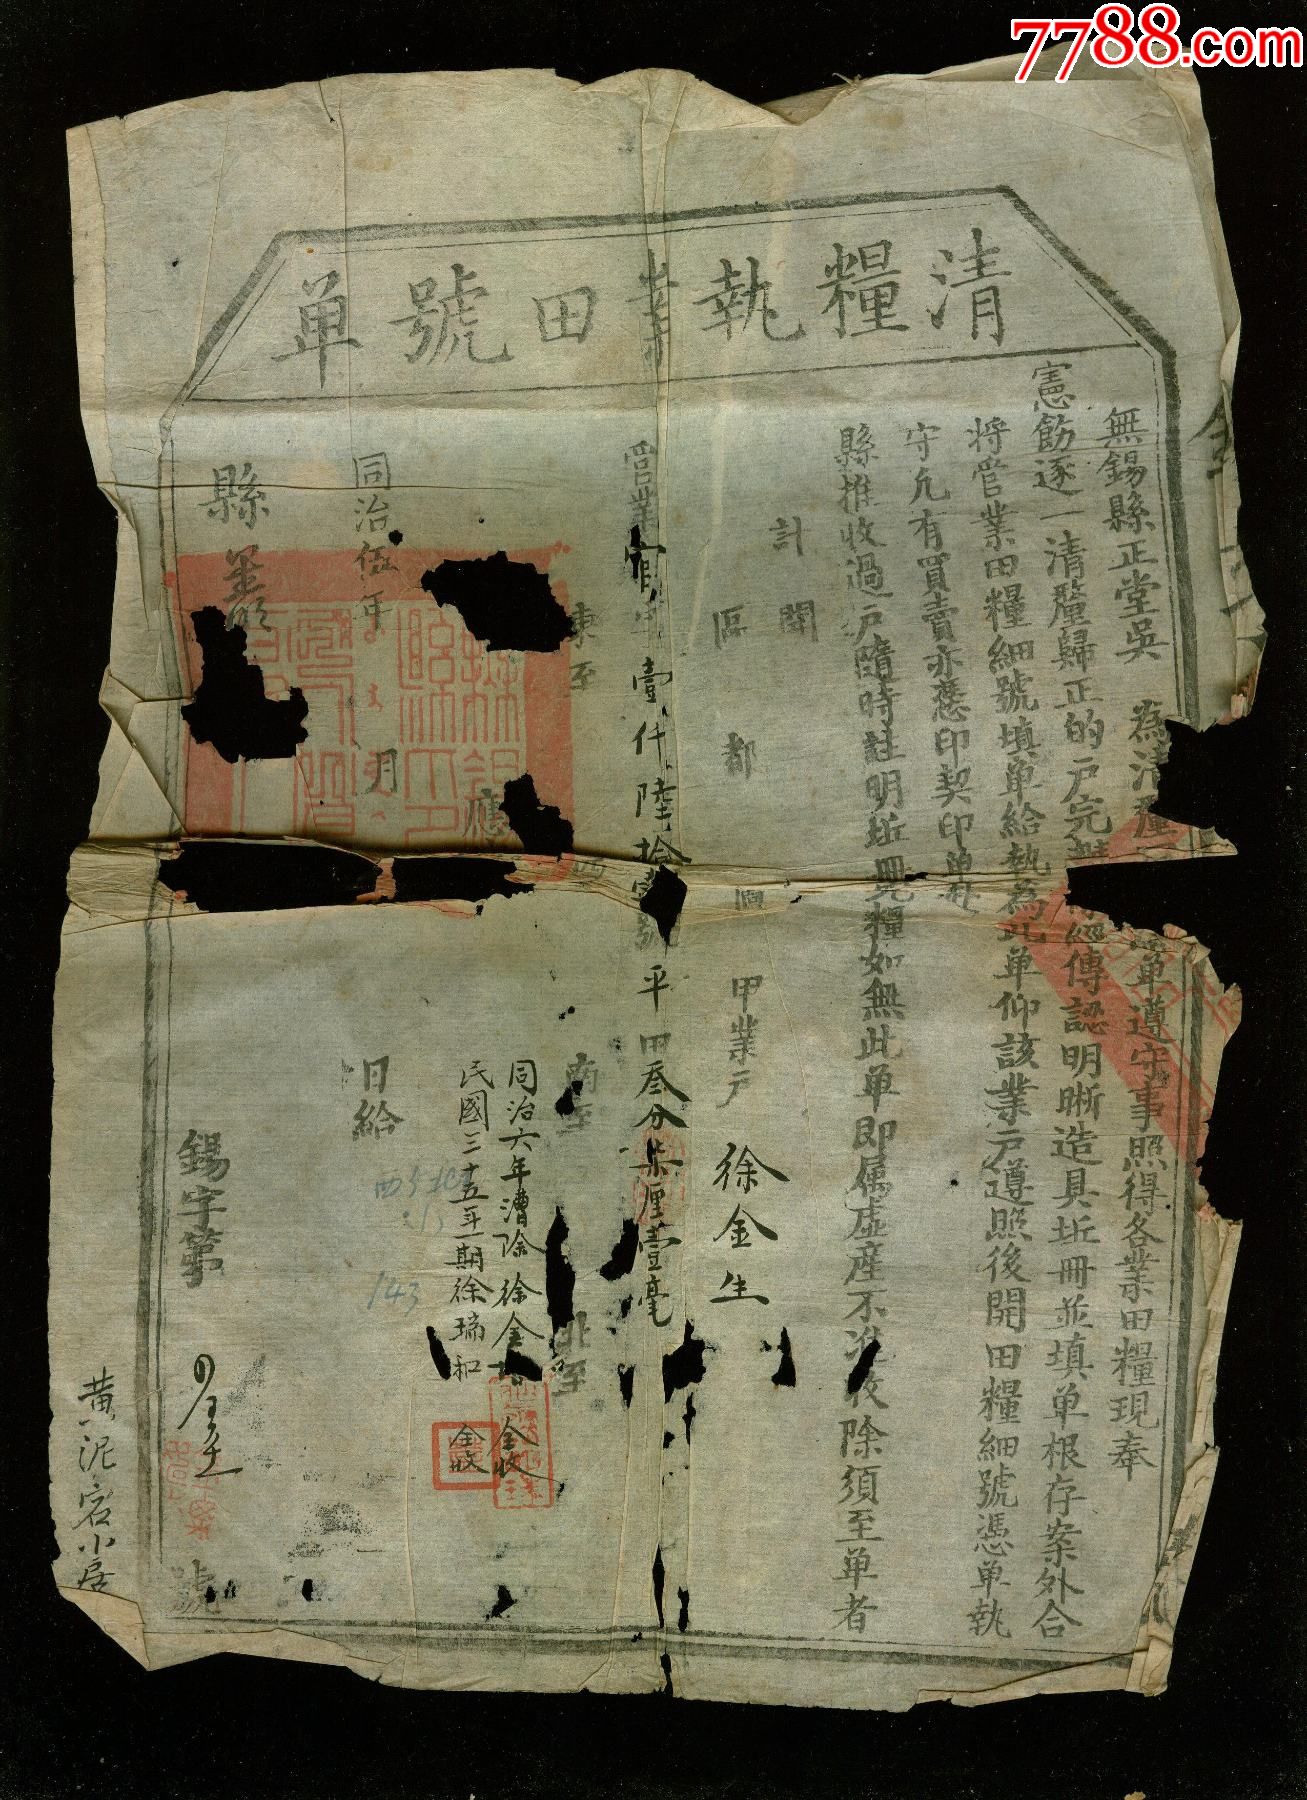 7788.com
清糧執業田號單
無錫縣正堂吳 為清釐 單遵守事照得各業田糧現奉
憲飭逐一清釐歸正的戶完 經傳認明晰造具坵冊並填单根存案外合
將管業田糧細號填单給執為此单仰該業戶遵照後開田糧細號憑单執
守凢有買賣亦應印契印单赴
縣推收過戶隨時註明坵冊完糧如無此单即属虛產不准收除須至单者
計開
區 都 圖 甲業戶 徐金生
營業 壹仟陸拾 號平田叁分柒厘壹毫
東至 南至 北至
同治六年漕除徐金 全收
民國三十五年一期徐瑞和 全收
同治伍年 月 日給
143
縣
錫字第 號
黄泥宕小居